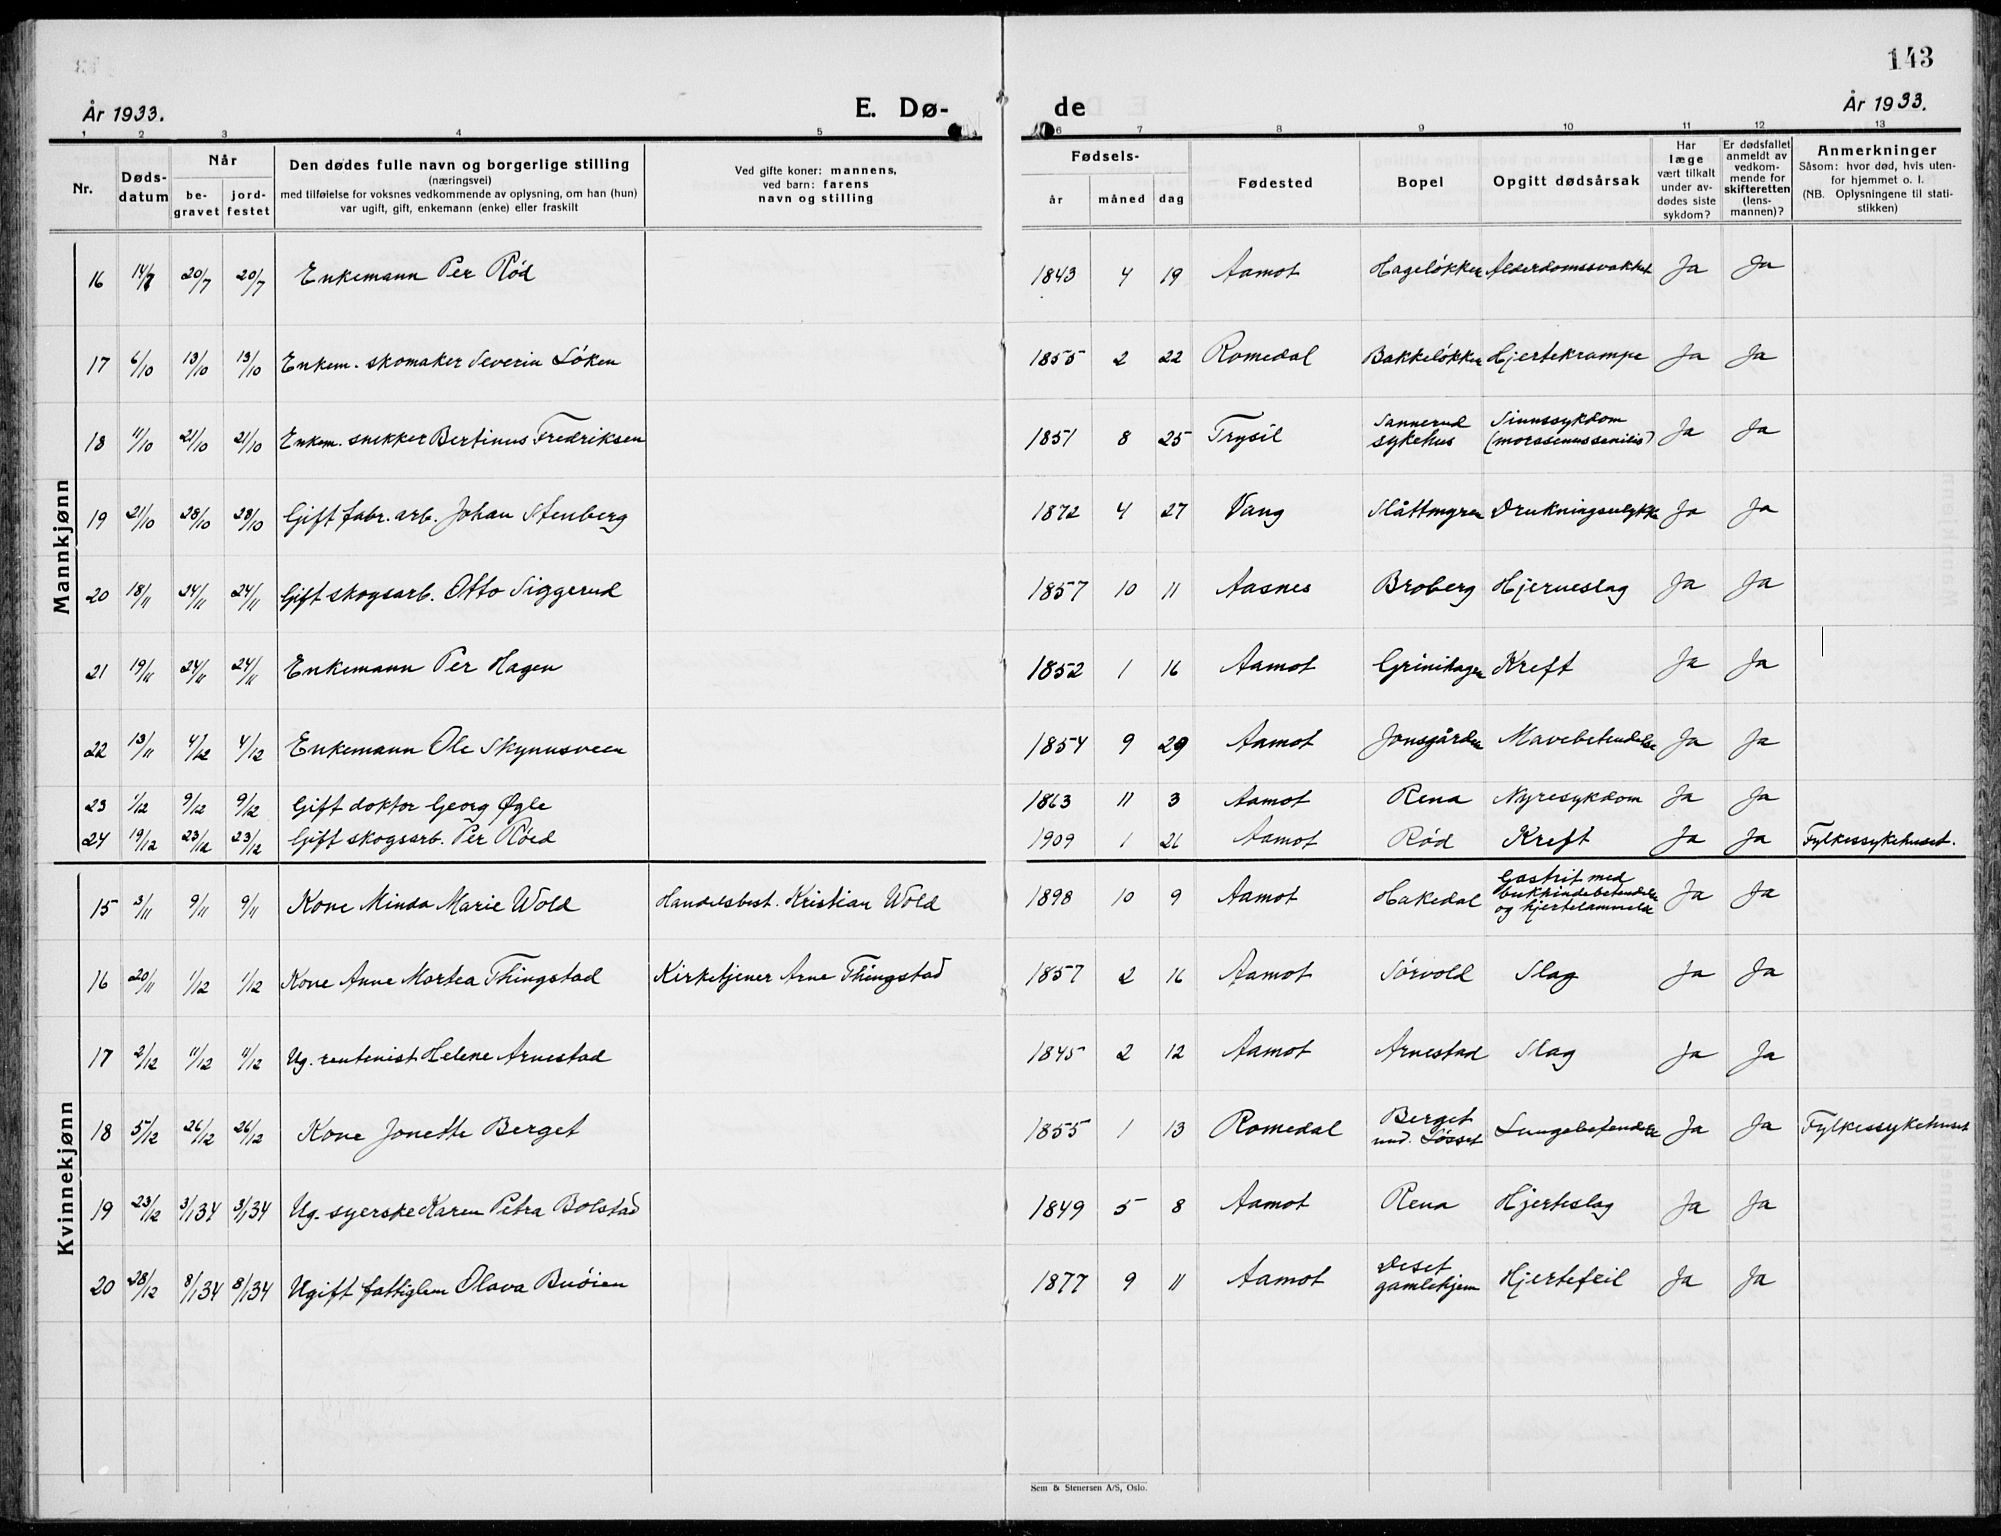 143
År 1933. E. Dø- de År 1933.
1 2 3 4 5 6 7 8 9 10 11 12 13
Nr. Døds-datum Når be-gravet jord-festet Den dødes fulle navn og borgerlige stilling (næringsvei) med tilføielse for voksnes vedkommende av oplysning, om han (hun) var ugift, gift, enkemann (enke) eller fraskilt Ved gifte koner: mannens, ved barn: farens navn og stilling Fødsels- år måned dag Fødested Bopel Opgitt dødsårsak Har læge vært tilkalt under av-dødes siste sykdom? Er dødsfallet anmeldt av vedkom-mende for skifteretten (lens-mannen)? Anmerkninger Såsom: hvor død, hvis uten-for hjemmet o. l. (NB. Oplysningene til stati-stikken)
Mannkjønn
16 14/7 20/7 20/7 Enkemann Per Rød 1843 4 19 Aamot Hageløkken Alderdomssvakhet Ja Ja
17 6/10 13/10 13/10 Enkem. skomaker Severin Løken 1855 2 22 Romedal Bakkeløkken Hjertekrampe Ja Ja
18 11/10 21/10 21/10 Enkem. snekker Bertinus Fredriksen 1851 8 25 Trysil Sannerud sykehus Sinnssykdom Ja Ja
19 21/10 28/10 28/10 Gift fabr. arb. Johan Stenberg 1872 4 27 Vang Slåttmyren Drukningsulykke Ja Ja
20 18/11 24/11 24/11 Gift skogsarb. Otto Siggerud 1857 10 11 Aasnes Broberg Hjerneslag Ja Ja
21 19/11 24/11 24/11 Enkemann Per Hagen 1852 1 16 Aamot Grinihagen Kreft Ja Ja
22 13/11 4/12 4/12 Enkemann Ole Skynnsveen 1854 9 29 Aamot Jonsgården Mavebetendelse Ja Ja
23 1/12 9/12 9/12 Gift doktor Georg Øgle 1863 11 3 Aamot Rena Nyresykdom Ja Ja
24 19/12 23/12 23/12 Gift skogsarb. Per Röed 1909 1 26 Aamot Rød Kreft Ja Ja Fylkessykehuset.
Kvinnekjønn
15 3/11 9/11 9/11 Kone Minda Marie Wold Handelsbest. Kristian Wold 1898 10 9 Aamot Hakedal Gastrit med bukhindebetendelse og hjertelammelse Ja Ja
16 20/11 1/12 1/12 Kone Anne Martea Thingstad Kirketjener Arne Thingstad 1857 2 16 Aamot Sørvold Slag Ja Ja
17 2/12 11/12 11/12 Ug. rentenist Helene Arnestad 1845 2 12 Aamot Arnestad Slag Ja Ja
18 5/12 26/12 26/12 Kone Jonette Berget 1855 1 13 Romedal Berget und. Løsset Lungebetendelse Ja Ja Fylkessykehuset
19 23/12 3/1 34 3/1 34 Ug. syerske Karen Petra Bolstad 1849 5 8 Aamot Rena Hjerteslag Ja Ja
20 28/12 8/1 34 8/1 34 Ugift fattiglem Olava Buöien 1877 9 11 Aamot Deset gamlehjem Hjertefeil Ja Ja
Sem & Stenersen A/S, Oslo.